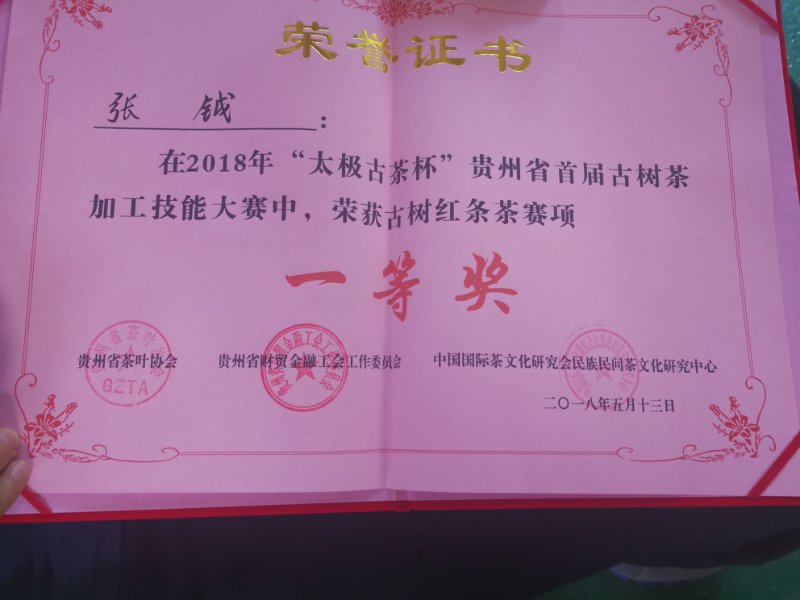 荣誉证书
张 钺：
在2018年“太极古茶杯”贵州省首届古树茶
加工技能大赛中，荣获古树红条茶赛项
一等奖
贵州省茶叶协会 贵州省财贸金融工会工作委员会 中国国际茶文化研究会民族民间茶文化研究中心
GZTA
二〇一八年五月十三日